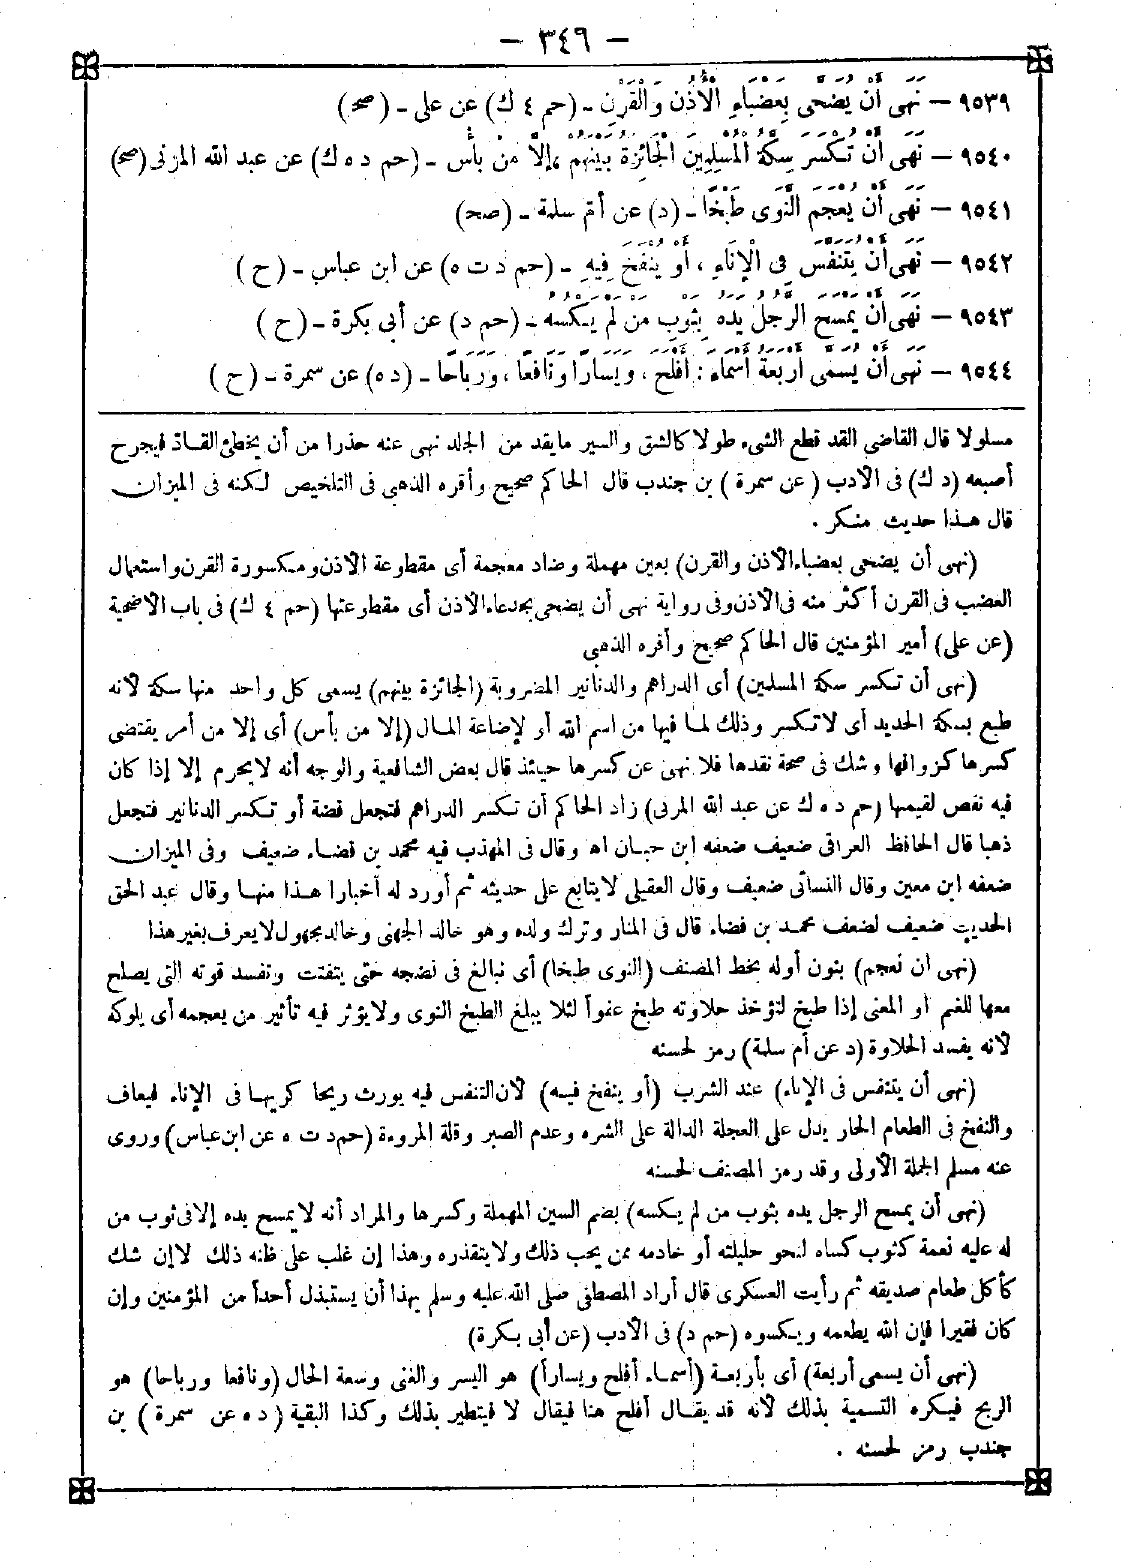 — ٣٤٩ —
٩٥٣٩ — نَهَى أَنْ يُضَحَّى بِعَضْبَاءِ الْأُذُنِ وَالْقَرْنِ - (حم ٤ ك) عن على - (صح)
٩٥٤٠ — نَهَى أَنْ تُكْسَرَ سِكَّةُ الْمُسْلِمِينَ الْجَائِزَةُ بَيْنَهُمْ، إِلَّا مِنْ بَأْسٍ - (حم د ه ك) عن عبد الله المزنى (صح)
٩٥٤١ — نَهَى أَنْ يُعْجَمَ النَّوَى طَبْخًا - (د) عن أم سلمة - (صح)
٩٥٤٢ — نَهَى أَنْ يُتَنَفَّسَ فِى الْإِنَاءِ ، أَوْ يُنْفَخَ فِيهِ - (حم د ت ه) عن ابن عباس - (ح)
٩٥٤٣ — نَهَى أَنْ يَمْسَحَ الرَّجُلُ يَدَهُ بِثَوْبِ مَنْ لَمْ يَكْسُهُ - (حم د) عن أبى بكرة - (ح)
٩٥٤٤ — نَهَى أَنْ يُسَمَّى أَرْبَعَةَ أَسْمَاءٍ : أَفْلَحَ ، وَيَسَارًا وَنَافِعًا ، وَرَبَاحًا - (د ه) عن سمرة - (ح)
مسلولا قال القاضى القد قطع الشىء طولا كالشق والسير مايقد من الجلد نهى عنه حذرا من أن يخطئ القاد فيجرح
أصبعه (د ك) فى الأدب (عن سمرة) بن جندب قال الحاكم صحيح وأقره الذهبى فى التلخيص لكنه فى الميزان
قال هذا حديث منكر .
(نهى أن يضحى بعضباء الأذن والقرن) بعين مهملة وضاد معجمة أى مقطوعة الاذن ومكسورة القرن واستعمال
العضب فى القرن أكثر منه فى الاذن وفى رواية نهى أن يضحى بجدعاء الاذن أى مقطوعتها (حم ٤ ك) فى باب الاضحية
(عن على) أمير المؤمنين قال الحاكم صحيح وأقره الذهبى
(نهى أن تكسر سكة المسلمين) أى الدراهم والدنانير المضروبة (الجائزة بينهم) يسمى كل واحد منها سكة لانه
طبع بسكة الحديد أى لاتكسر وذلك لما فيها من اسم الله أو لإضاعة المال (إلا من بأس) أى إلا من أمر يقتضى
كسرها كزوافها وشك فى صحة نقدها فلا نهى عن كسرها حينئذ قال بعض الشافعية والوجه أنه لايحرم إلا إذا كان
فيه نقص لقيمها (حم د ه ك عن عبد الله المزنى) زاد الحاكم أن تكسر الدراهم فتجعل فضة أو تكسر الدنانير فتجعل
ذهبا قال الحافظ العراقى ضعيف ضعفه ابن حبان اه وقال فى المهذب فيه محمد بن فضاء ضعيف وفى الميزان
ضعفه ابن معين وقال النسائى ضعيف وقال العقيلى لايتابع على حديثه ثم أورد له أخبارا هذا منها وقال عبد الحق
الحديث ضعيف لضعف محمد بن فضاء قال فى المنار وترك ولده وهو خالد الجهنى وخالد مجهول لايعرف بغير هذا
(نهى أن نعجم) بنون أوله بخط المصنف (النوى طبخا) أى نبالغ فى نضجه حتى يتفتت وتفسد قوته التى يصلح
معها للغنم أو المعنى إذا طبخ لتؤخذ حلاوته طبخ عفوا لئلا يبلغ الطبخ النوى ولايؤثر فيه تأثير من يعجمه أى يلوكه
لأنه يفسد الحلاوة (د عن أم سلمة) رمز لحسنه
(نهى أن يتنفس فى الإناء) عند الشرب (أو ينفخ فيه) لأن التنفس فيه يورث ريحا كريها فى الإناء فيعاف
والنفخ فى الطعام الحار يدل على العجلة الدالة على الشره وعدم الصبر وقلة المروءة (حم د ت ه عن ابن عباس) وروى
عنه مسلم الجملة الأولى وقد رمز المصنف لحسنه
(نهى أن يمسح الرجل يده بثوب من لم يكسه) بضم السين المهملة وكسرها والمراد أنه لايمسح يده إلا فى ثوب من
له عليه نعمة كثوب كساه لنحو حليلته أو خادمه ممن يحب ذلك ولايتقذره وهذا إن غلب على ظنه ذلك لا إن شك
كأكل طعام صديقه ثم رأيت العسكرى قال أراد المصطفى صلى الله عليه وسلم بهذا أن يستبذل أحداً من المؤمنين وإن
كان فقيرا فإن الله يطعمه ويكسوه (حم د) فى الأدب (عن أبى بكرة)
(نهى أن يسمى أربعة) أى بأربعة (أسماء أفلح ويساراً) هو اليسر والغنى وسعة الحال (ونافعا ورباحا) هو
الربح فيكره التسمية بذلك لأنه قد يقال أفلح هنا فيقال لا فيتطير بذلك وكذا البقية (د ه عن سمرة) بن
جندب رمز لحسنه .